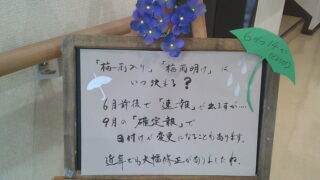 6月14日
「梅雨入り」「梅雨明け」は
いつ決まる?
6月前後で「速報」が出ますが…
9月の「確定報」で
日付けが変更になることもあります。
近年でも大幅修正がありましたね。